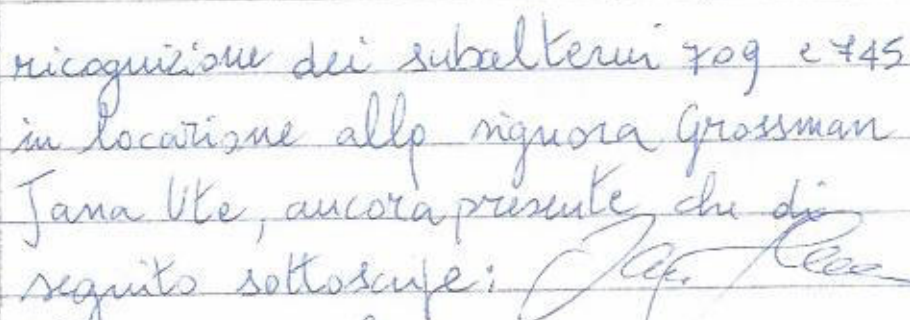 ricognizione dei subalterni 709 e 745
in locazione alla signora Grossman
Jana Ute, ancora presente che di
seguito sottoscrive: